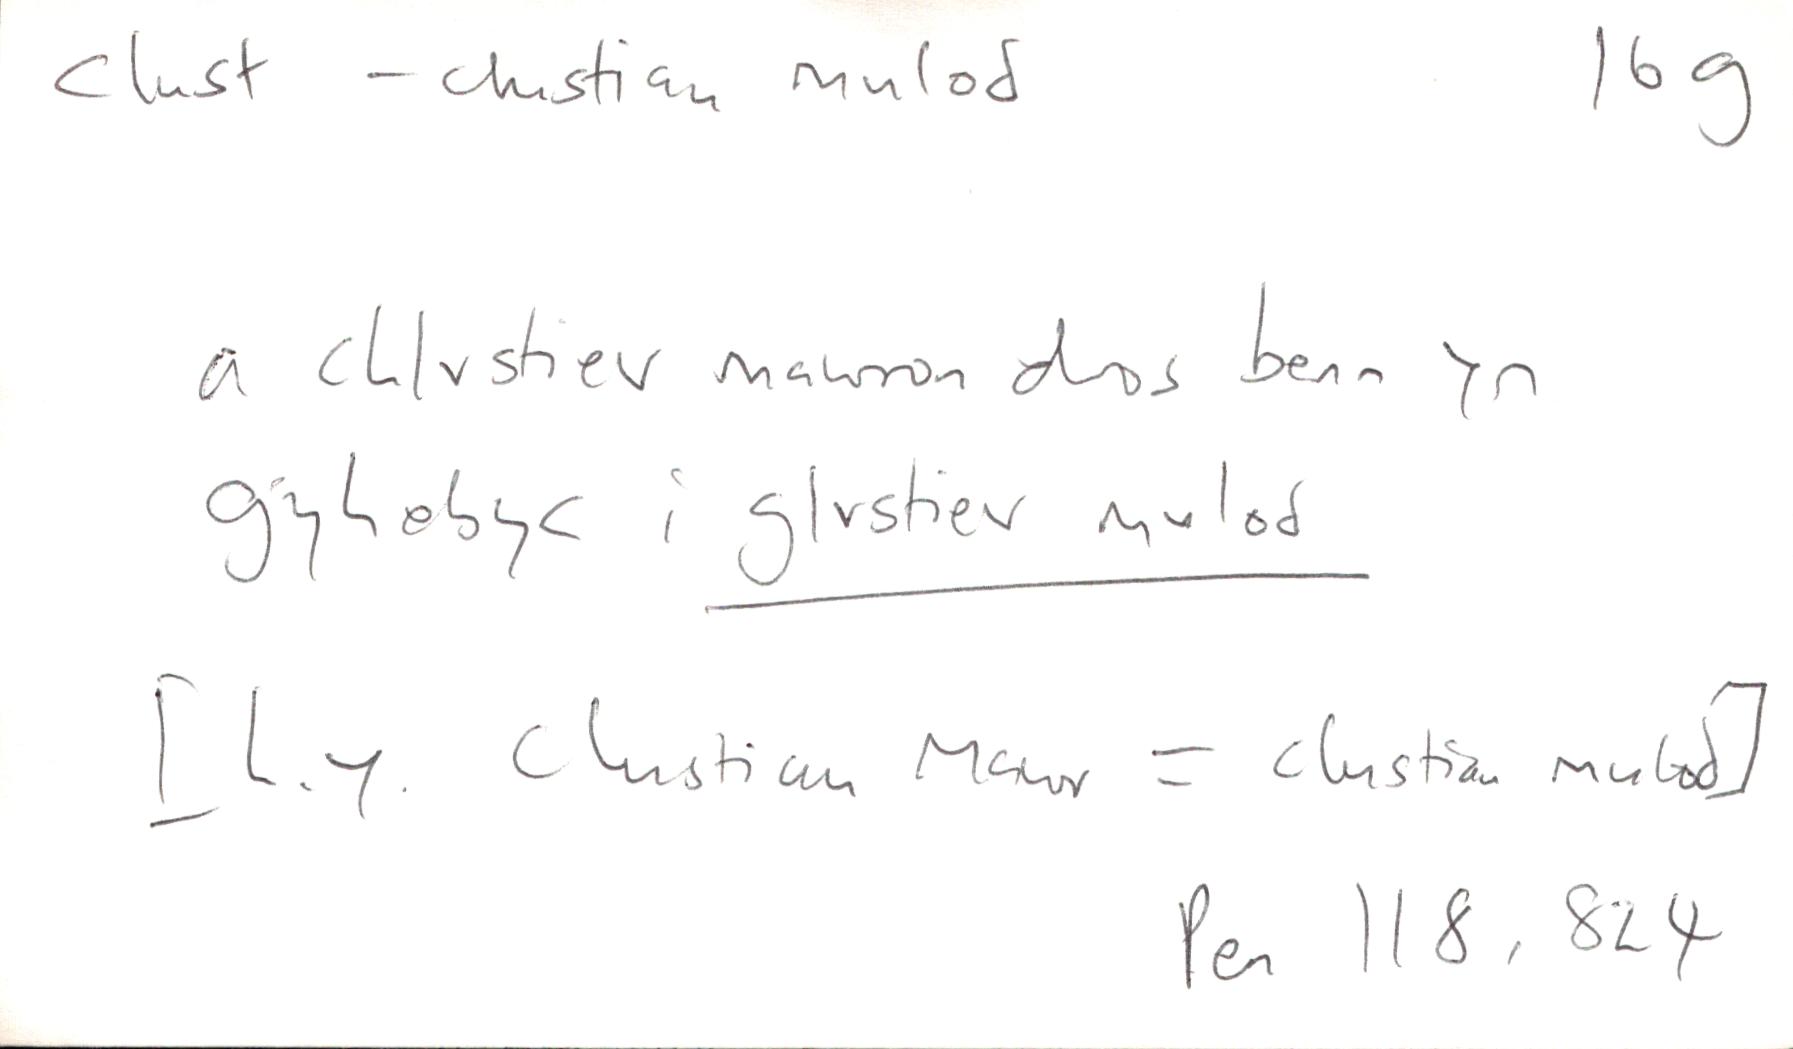 clust - clustiau mulod 16g
a chlvstiev mawron dros benn yn
gyhobyc i glvstiev mulod
[h.y. Clustiau Mawr = clustiau mulod]
Pen 118, 824